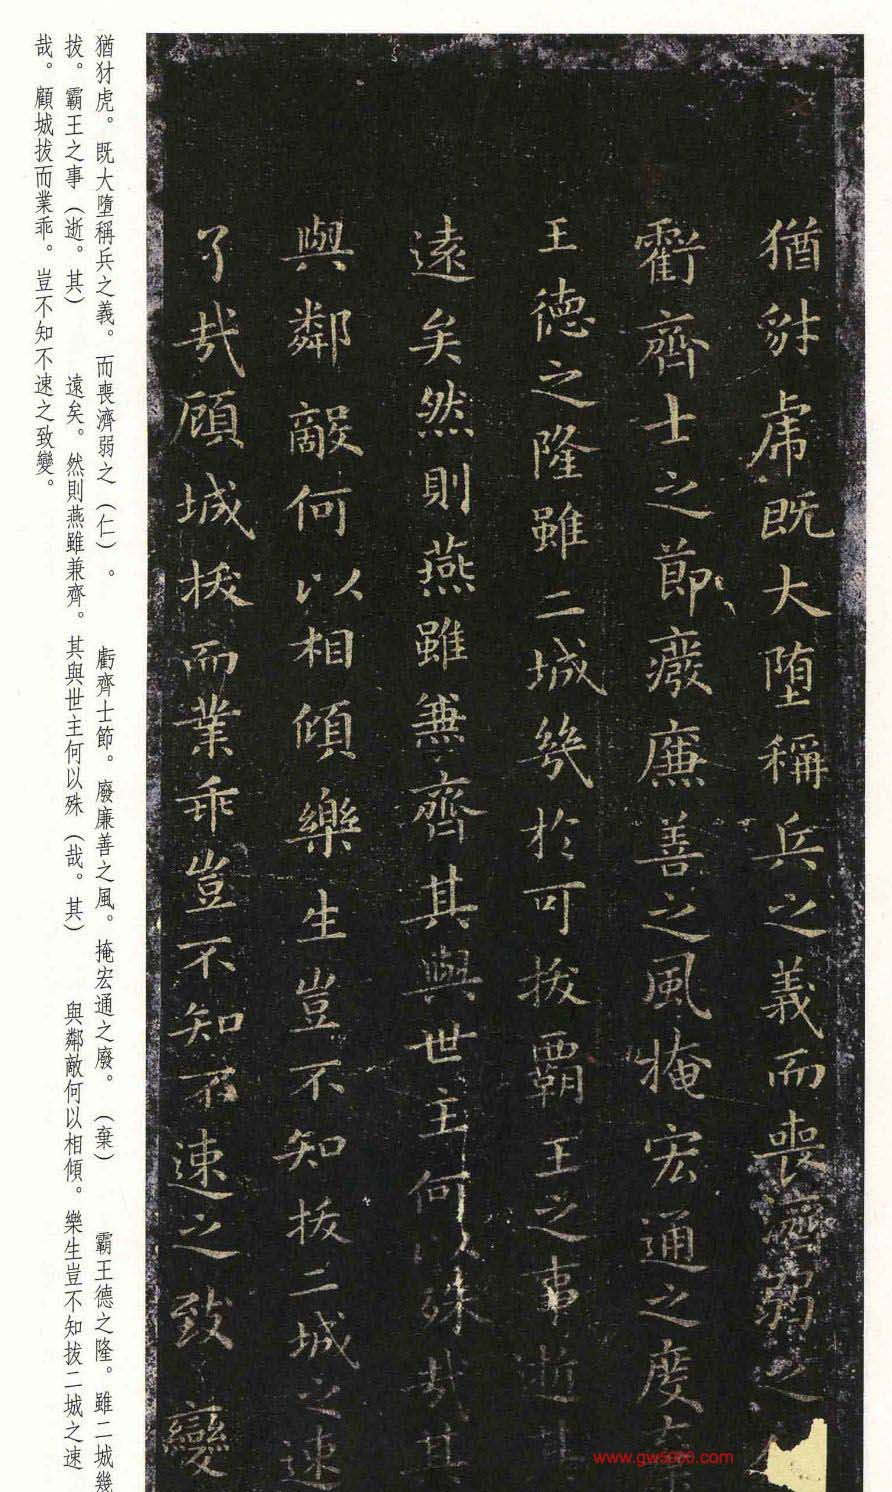 猶豺虎既大堕稱兵之義而喪濟弱之
虧齊士之節癈廉善之風掩宏通之度棄
王德之隆雖二城幾於可拔霸王之事逝其
遠矣然則燕雖兼齊其與世主何以殊哉其
與鄰敵何以相傾樂生豈不知拔二城之速
了哉顧城拔而業乖豈不知不速之致變
猶犲虎。既大墮稱兵之義。而喪濟弱之（仁）。虧齊士節。廢廉善之風。掩宏通之廢。（棄）霸王德之隆。雖二城幾
拔。霸王之事（逝。其）遠矣。然則燕雖兼齊。其與世主何以殊（哉。其）與鄰敵何以相傾。樂生豈不知拔二城之速
哉。顧城拔而業乖。豈不知不速之致變。